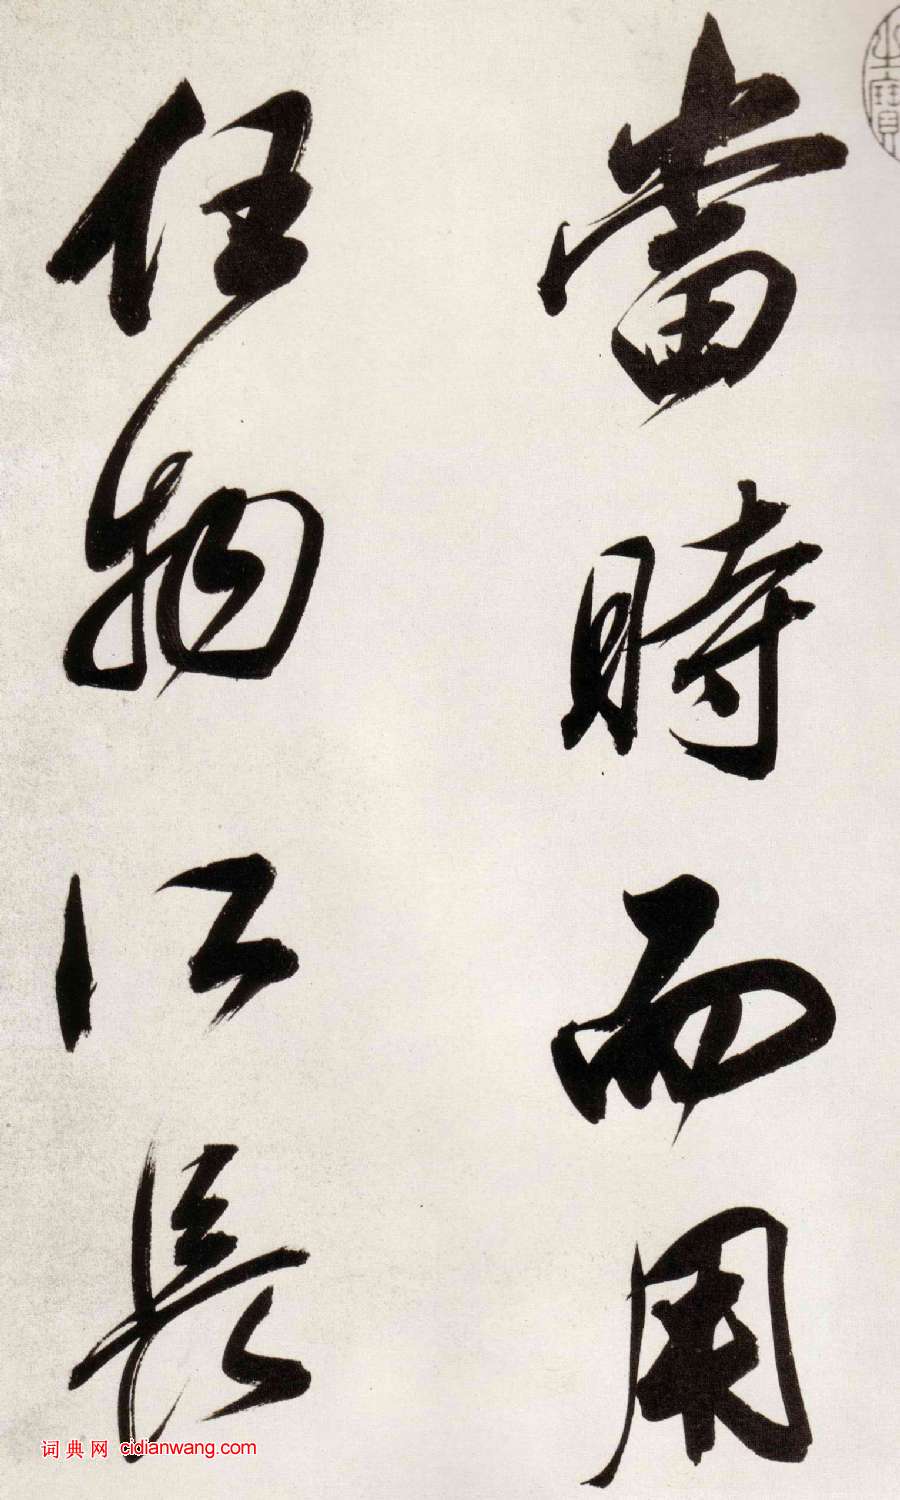 當時而用
任物江長
词典网 cidianwang.com